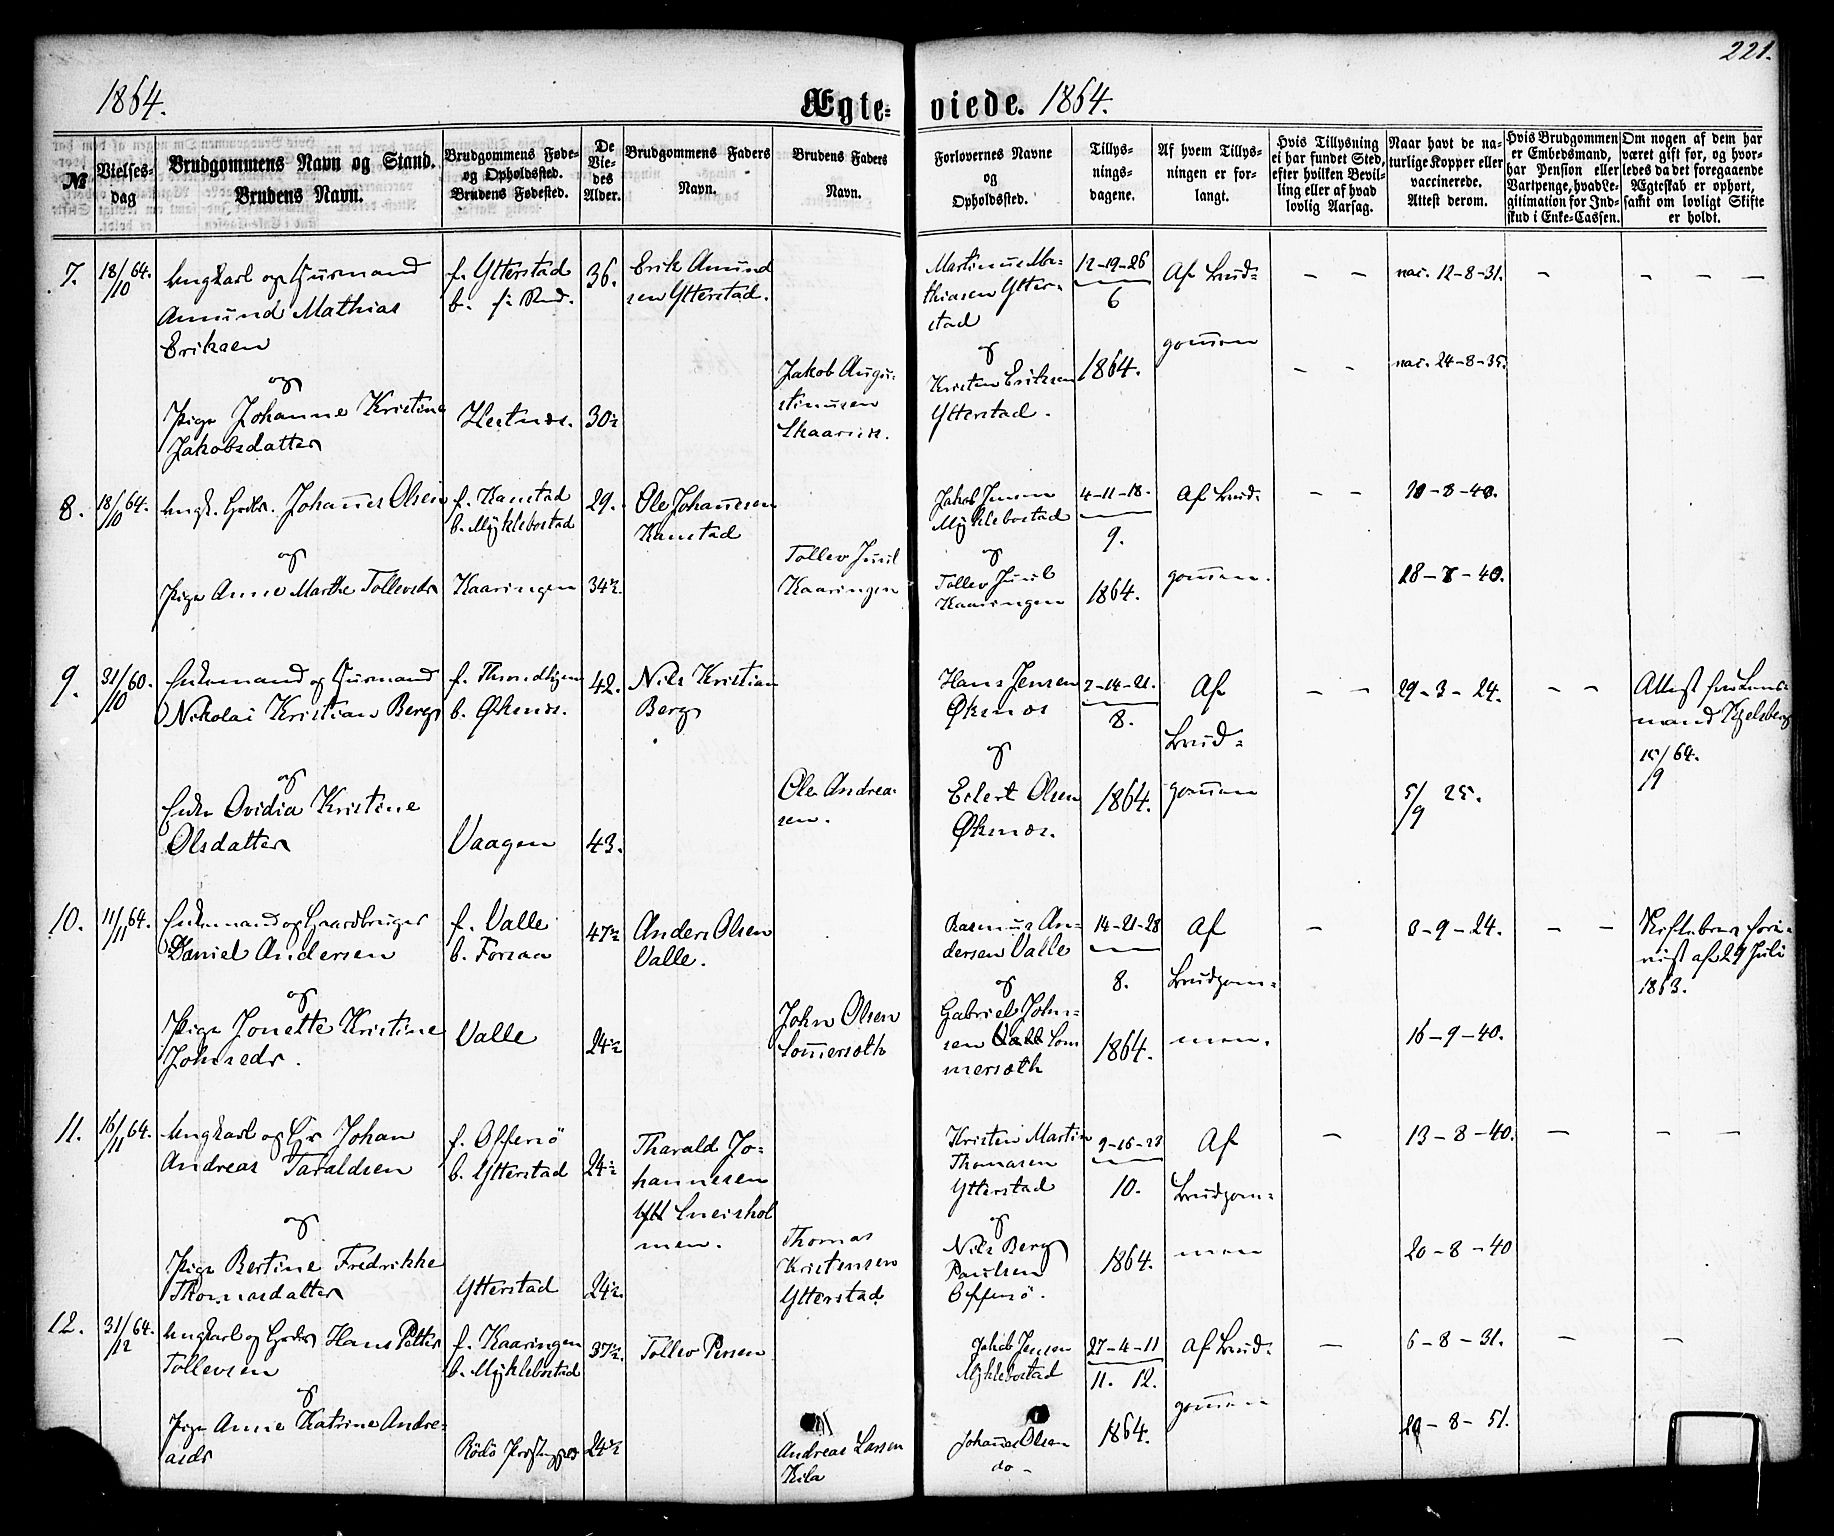 221.
1864.
Ægte-viede. 1864.
№
Vielses-
dag
Brudgommens Navn og Stand.
Brudens Navn.
Brudgommens Føde-
og Opholdssted.
Brudens Fødested.
De
Vie-
des
Alder.
Brudgommens Faders
Navn.
Brudens Faders
Navn.
Forlovernes Navne
og
Opholdssted.
Tillys-
nings-
dagene.
Af hvem Tillys-
ningen er for-
langt.
Hvis Tillysning
ei har fundet Sted,
efter hvilken Bevil-
ling eller af hvad
lovlig Aarsag.
Naar havt de na-
turlige Kopper eller
vaccinerede.
Attest derom.
Hvis Brudgommen
er Embedsmand,
har Pension eller
Vartpenge, hvad Le-
gitimation for Ind-
skud i Enke-Cassen.
Om nogen af dem har
været gift før, og hvor-
ledes da det foregaaende
Ægteskab er ophørt,
samt om lovligt Skifte
er holdt.
7.
18/10 64.
Ungkarl og Huusmand
Amund Mathias
Eriksen
og
Pige Johanne Kristine
Jakobsdatter
f. Ytterstad
b.
Hestnæs.
36.
30½
Erik Amund
sen Ytterstad.
Jakob Augu-
stinusen
Martinus Ma-
thiasen Ytter-
stad
og
Kristen Eriksen
Ytterstad.
12-19-26
6
1864.
Af Brud-
gommen
— —
— —
nat. 12-8-31.
nat. 24-8-35.
—
— — —
8.
18/10 64.
Ungk. Gbr. Johannes Olsen
og
Pige Anne Marthe Tollevsdr
f. Kanstad
b. Myklebostad
Kaaringen
29.
34½
Ole Johannesen
Kanstad
Tollev Juul
Kaaringen
Jakob Jensen
Myklebostad
og
Tollev Juul
Kaaringen
4-11-18.
9.
1864.
Af Brud-
gommen.
— —
10-8-40.
18-8-40.
9.
31/10 60.
Enkemand og Huusmand
Nikolai Kristian Berg
og
Enke Ovidia Kristine
Olsdatter
f.
b. Øksnæs.
Vaagen
42.
43.
Nils Kristian
Berg
Ole Andrea-
sen.
Hans Jensen
Øksnæs
og
Eilert Olsen
Øksnæs.
7-14-21.
8.
1864.
Af
Brud-
gommen
— —
29-3-24.
5/9 25.
— —
Attest fra Lens-
mand Kjelsberg
15/9 64.
10.
11/11 64.
Enkemand og Gaardbruger
Daniel Andersen
og
Pige Jonette Kristine
Johnsdr.
f. Valle
b. Forsaa
Valle
47½
24½
Anders Olsen
Valle.
John Olsen
Sommersæth
Rasmus An-
dersen Valle
og
Gabriel John-
sen Som
mersæth
14-21-28
8.
1864.
Af
Brudgom-
men.
—
8-9-24.
16-9-40.
— —
Skiftebrev
af 29 Juli
1863.
11.
16/11 64.
Ungkarl og Gbr Johan
Andreas Taraldsen
og
Pige Bertine Fredrikke
Thomasdatter
f. Offersö
b. Ytterstad
Ytterstad
24½
24½
Tharald Jo-
hannesen
Sneishol
men.
Thomas
Kristensen
Ytterstad
Kristen Martin
Thomasen
Ytterstad
og
Nils Berg
Paulsen
Offersö.
9-16-23
10.
1864.
Af
Brudgom-
men
—
13-8-40.
20-8-40
—
— —
12.
31/12 64.
Ungkarl og Gbr Hans Petter
Tollevsen
og
Pige Anne Katrine Andre-
asdr
f. Kaaringen
b. Myklebostad
Rödö Præstegjeld
37½.
24½
Tollev Persen
Andreas Larsen
Kila
Jakob Jensen
Myklebostad
Johannes Olsen
do-
27-4-11
11. 12.
1864.
Af Brud-
gommen
—
—
6-8-31.
29-8-51.
—
—